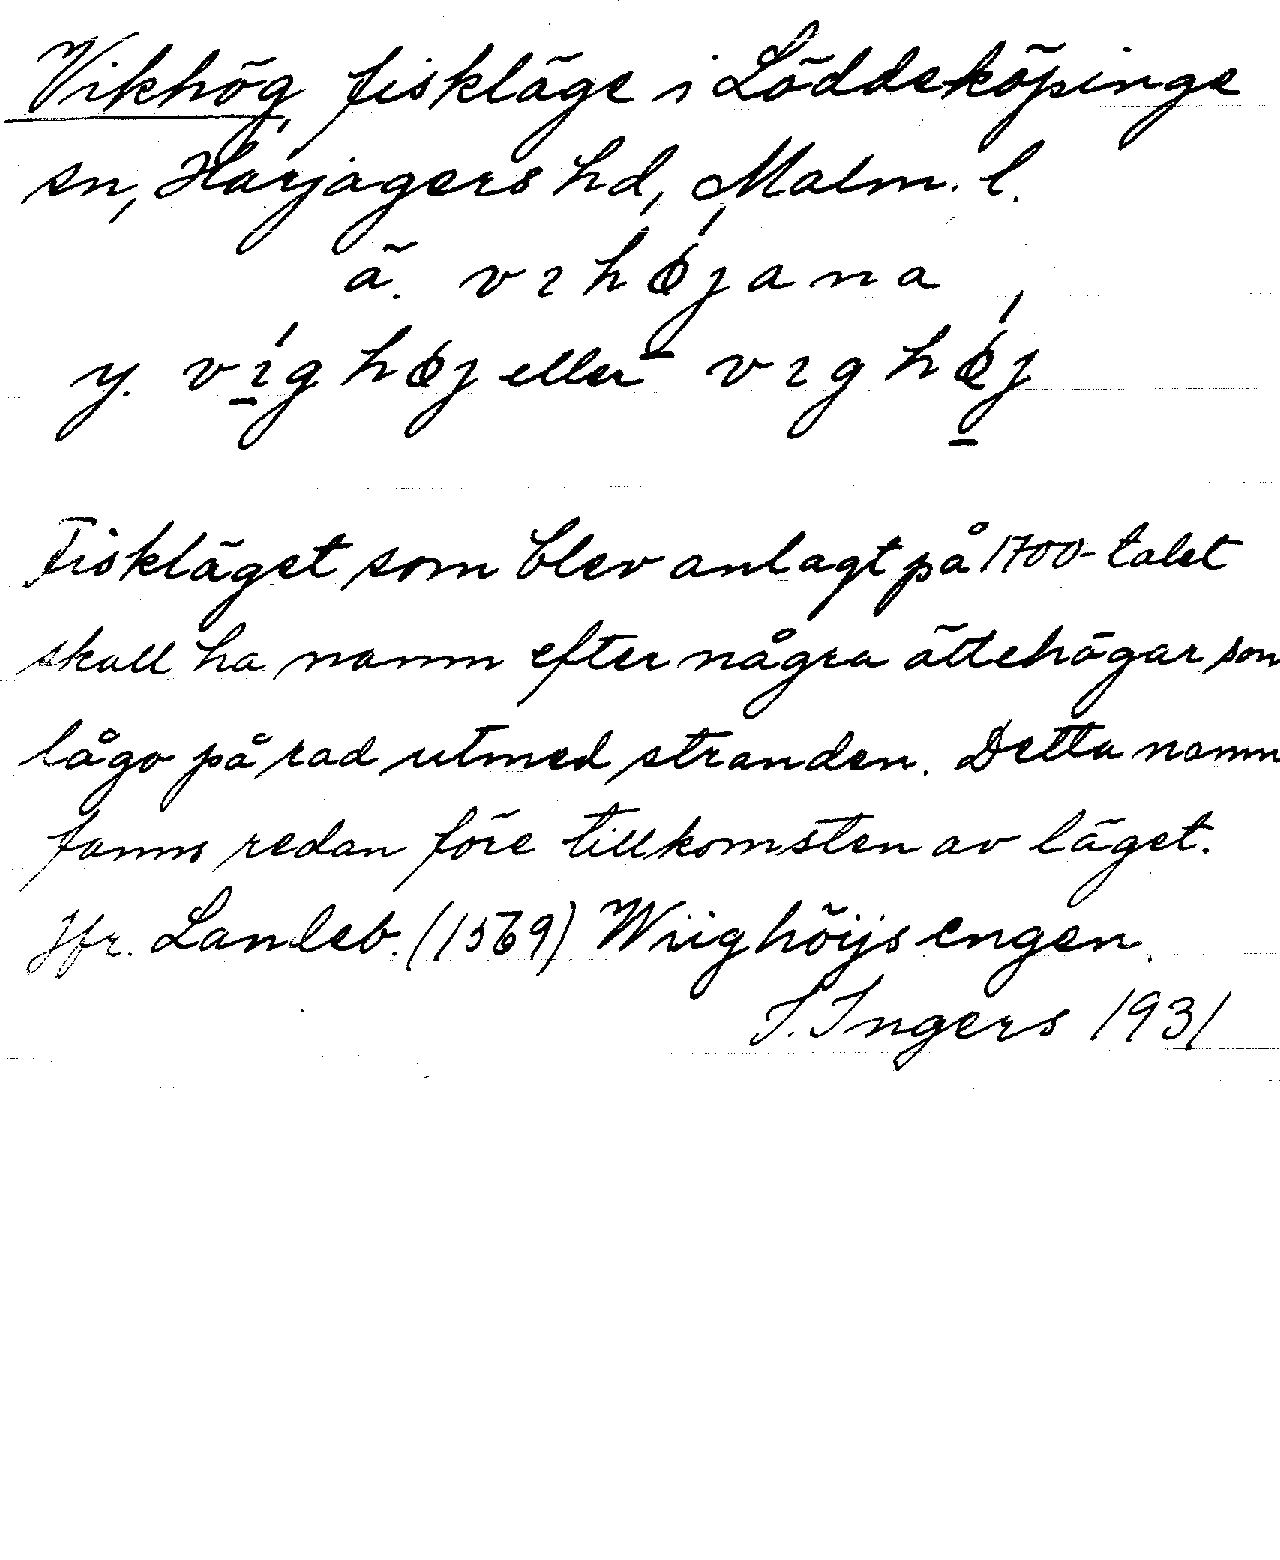 Vikhög, fiskläge i Löddeköpinge
sn, Harjagers hd, Malm. l.
ä. vıhǿjana
y. vı́ghøj eller vıghǿj
Fiskläget som blev anlagt på 1700-talet
skall ha namn efter några ättehögar som
lågo på rad utmed stranden. Detta namn
fanns redan före tillkomsten av läget.
Jfr. Lanleb. (1569) Wiighöijs engen.
I. Ingers 1931